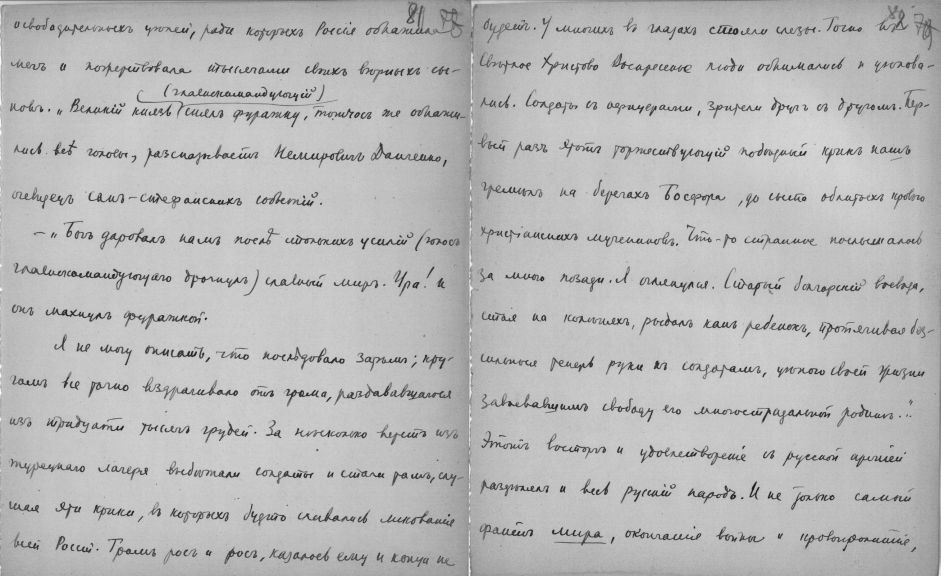 81
освободительныхъ цѣлей, ради которыхъ Россія обнажила
мечъ и пожертвовала тысячами своихъ вѣрныхъ сы-
(главнокомандующій)
новъ. „Великій князь снялъ фуражку, тотчасъ же обнажи-
лись всѣ головы, разсказываетъ Немировичъ Данченко,
очевидецъ санъ-стефанскихъ событій.
— „Богъ даровалъ намъ послѣ столькихъ усилій (голосъ
главнокомандующаго дрогнулъ) славный миръ. Ура! и
онъ махнулъ фуражкой.
Я не могу описать, что послѣдовало затѣмъ; кру-
гомъ все точно вздрагивало отъ грома, раздававшагося
изъ тридцати тысячъ грудей. За нѣсколько верстъ изъ
турецкаго лагеря выбѣжали солдаты и стали тамъ, слу-
шая эти крики, въ которыхъ будто сливалось ликованіе
всей Россіи. Громъ росъ и росъ, казалось ему и конца не
82
будетъ. У многихъ въ глазахъ стояли слезы. Точно въ
Свѣтлое Христово Воскресенье люди обнимались и цѣлова-
лись. Солдаты съ офицерами, зрители другъ съ другомъ. Пер-
вый разъ этотъ торжествующій побѣдный крикъ нашъ
гремѣлъ на берегахъ Босфора, до сыта облитыхъ кровью
христіанскихъ мучениковъ. Что-то странное послышалось
за мною позади. Я оглянулся. Старый болгарскій воевода,
стоя на колѣняхъ, рыдалъ какъ ребенокъ, протягивая без-
сильныя теперь руки къ солдатамъ, цѣною своей жизни
завоевавшимъ свободу его многострадальной родинѣ..."
Этотъ восторгъ и удовлетвореніе съ русской арміей
раздѣлялъ и весь русскій народъ. И не только самый
фактъ мира, окончаніе войны и кровопролитіе,